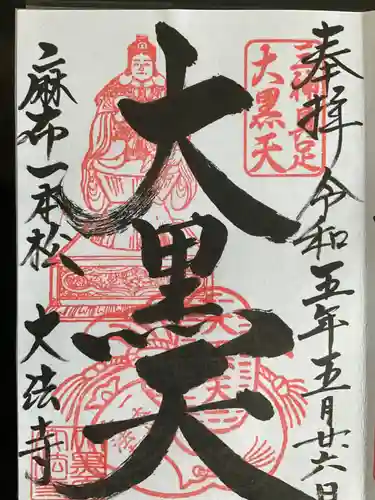 奉拝 令和五年五月廿六日
三神具足
大黒天
大黒天
麻布一本松 大法寺